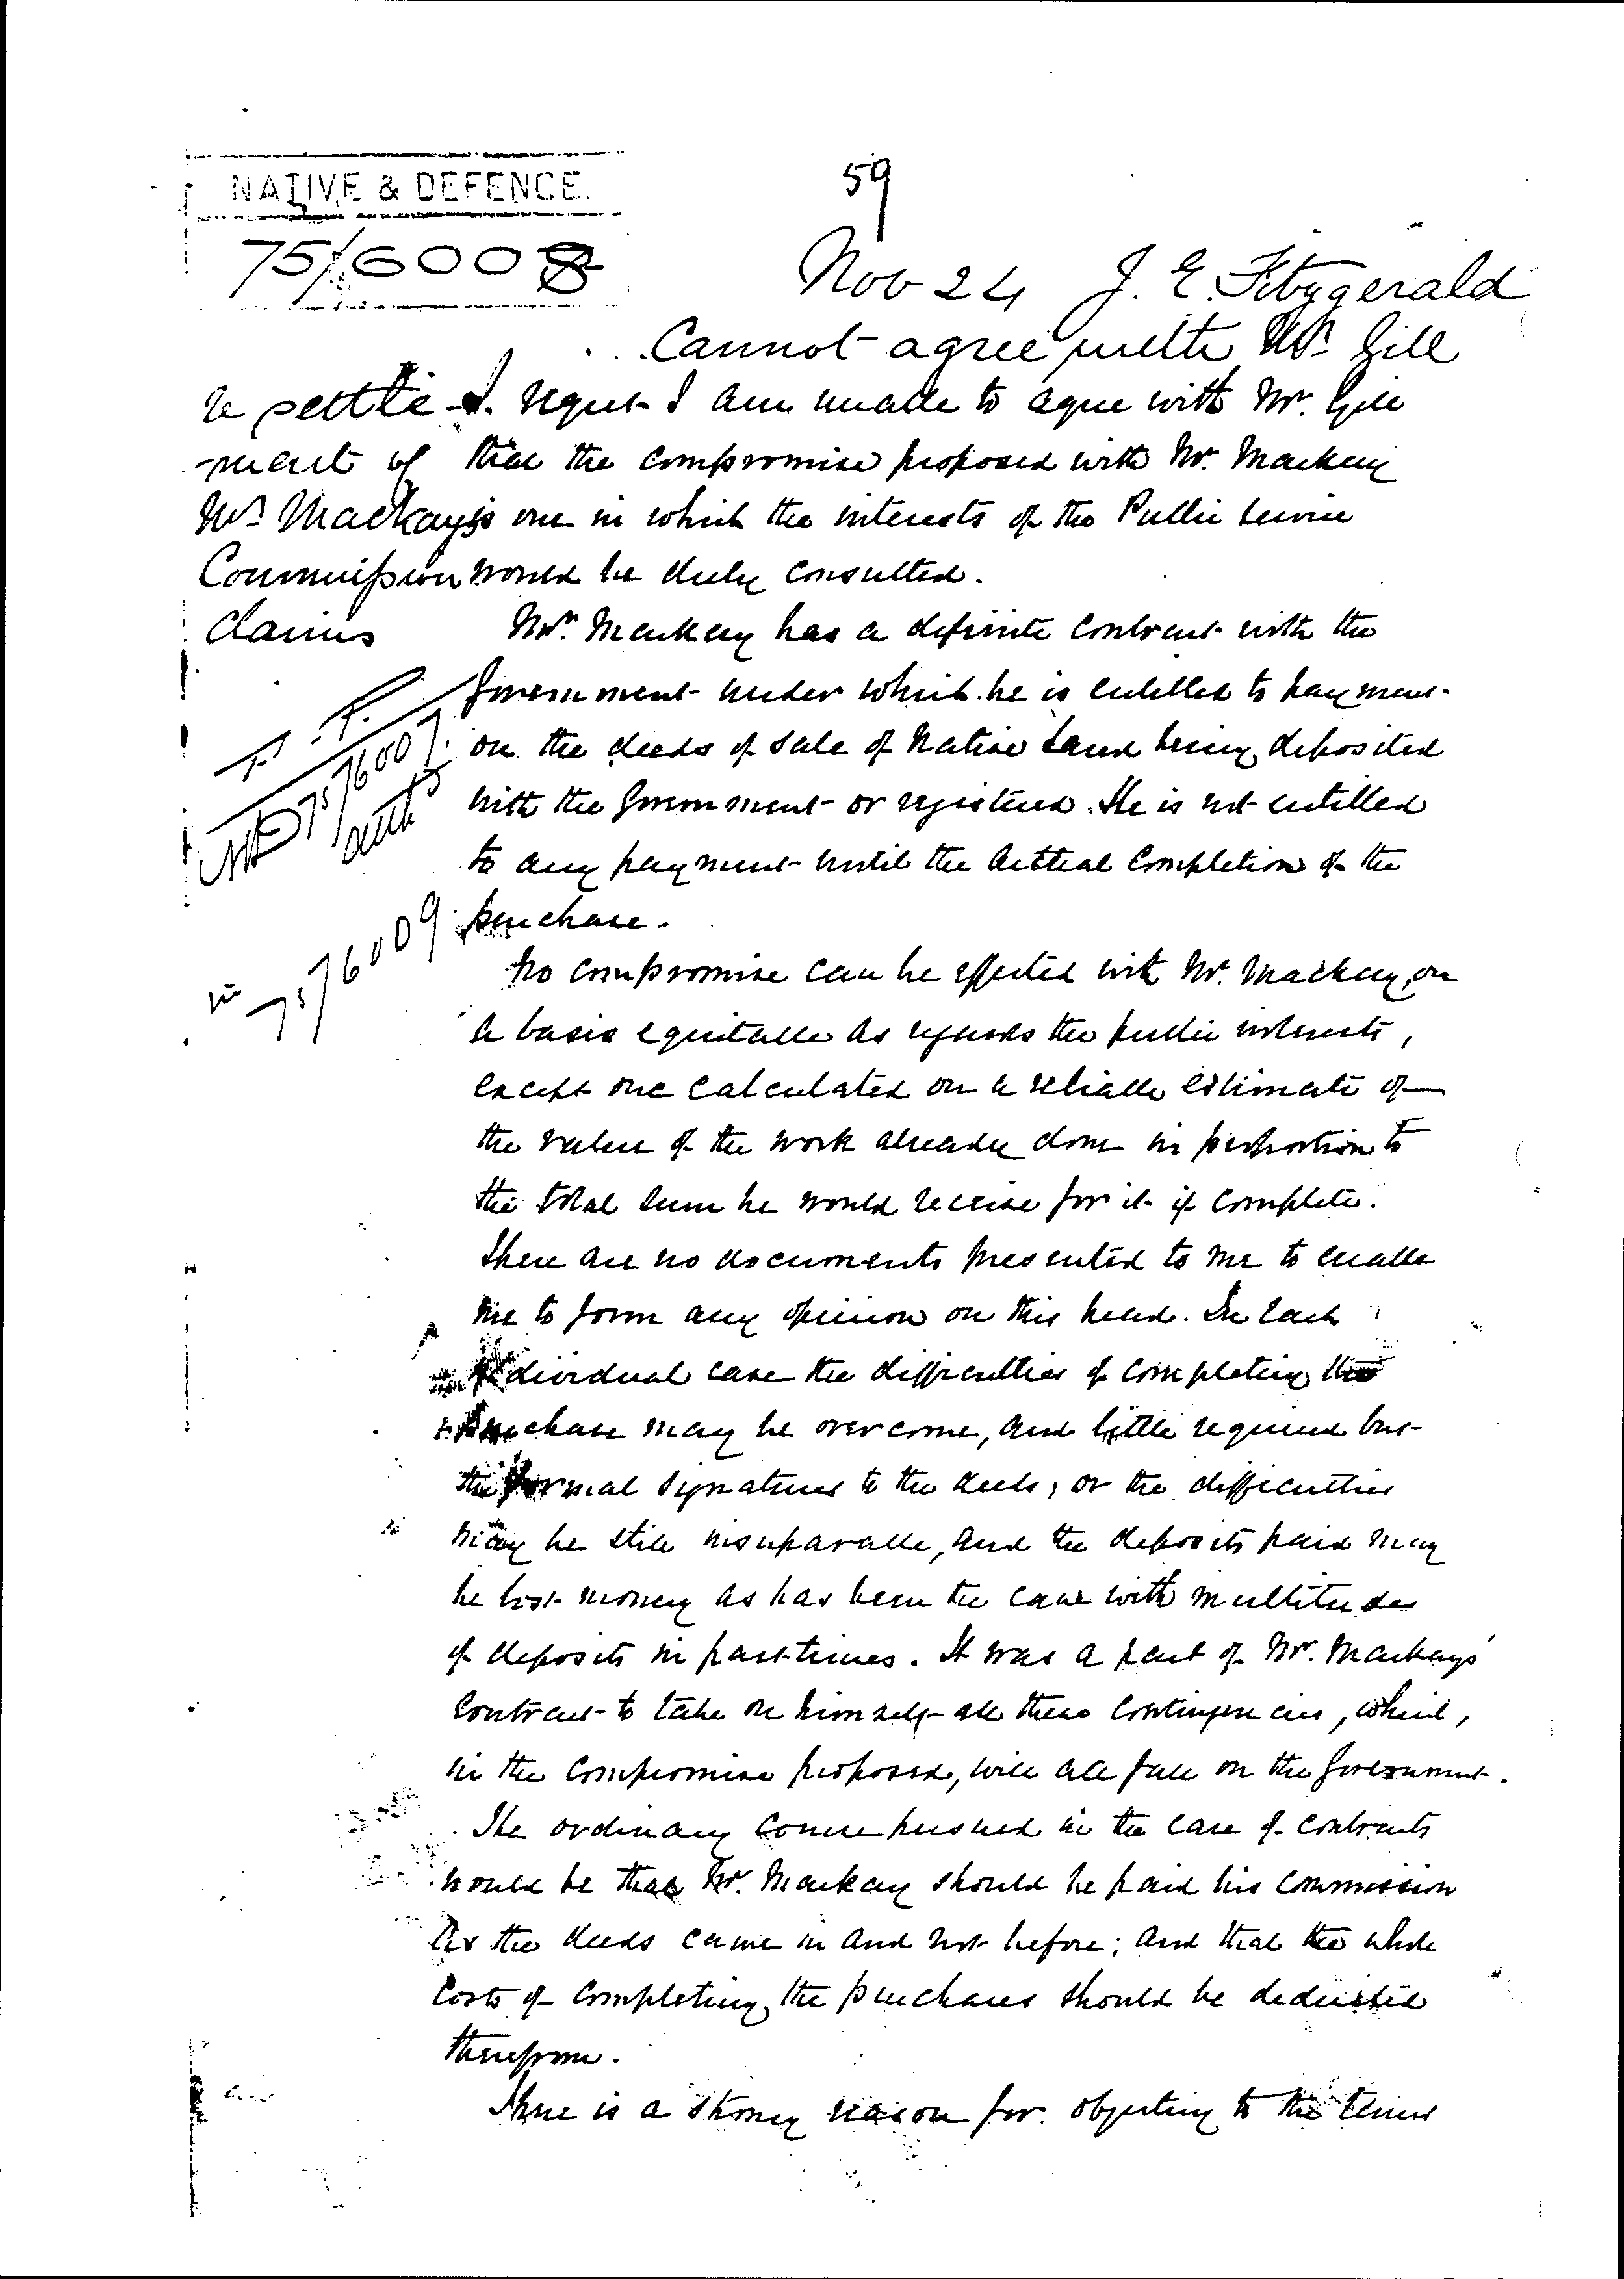 NATIVE & DEFENCE.
59
75/6008
Nov 24 J. E. Fitzgerald
Cannot agree with Mr. Gill
re settle
-ment of
Mr. Mackay's
Commission
Claims
I regret I am unable to agree with Mr. Gill
that the compromise proposed with Mr. Mackay
is one in which the interests of the Public Service
would be duly consulted.
Mr. Mackay has a definite contract with the
Government under which he is entitled to payment
on the deeds of sale of Native Land being deposited
with the Government or registered. He is not entitled
to any payment until the actual completion of the
purchase.
75/6007
75/6009
No compromise can be effected with Mr. Mackay, on
a basis equitable as regards the public interests,
except one calculated on a reliable estimate of
the value of the work already done in proportion to
the total sum he would receive for it if complete.
There are no documents presented to me to enable
me to form any opinion on this head. In each
individual case the difficulties of completing the
purchase may be overcome, and little required but
the formal signatures to the deeds; or the difficulties
may be still insuparable, and the deposits paid may
be lost money as has been the case with multitudes
of deposits in past times. It was a part of Mr. Mackays'
contract to take on himself all these contingencies, which,
in the compromise proposed, will all fall on the Government.
The ordinary course pursued in the case of contracts
would be that Mr. Mackay should be paid his commission
as the deeds came in and not before; and that the whole
costs of completing the purchases should be deducted
therefrom.
There is a strong reason for objecting to the terms